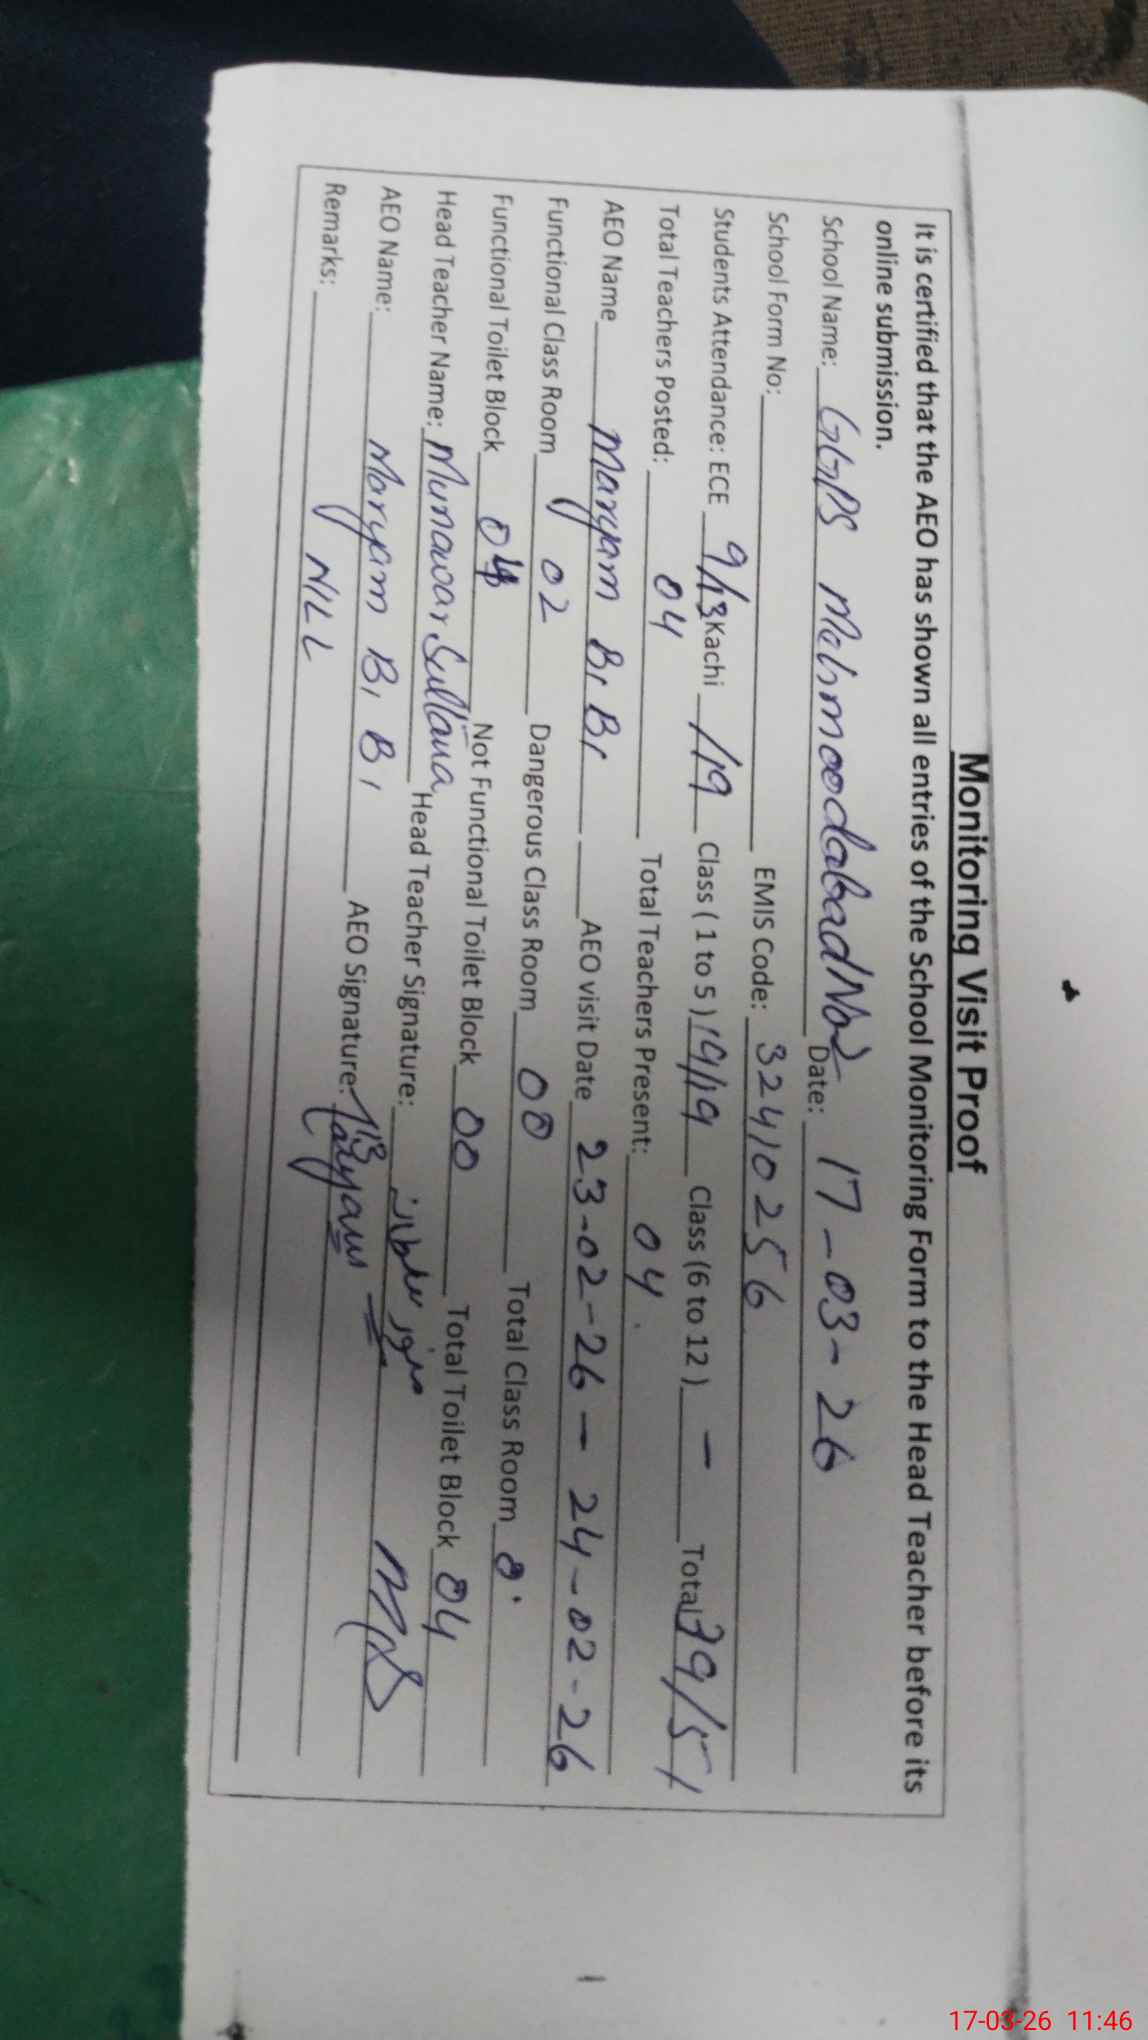 Monitoring Visit Proof
It is certified that the AEO has shown all entries of the School Monitoring Form to the Head Teacher before its
online submission.
School Name: GGPS Mahmoodabad No2 Date: 17-03-26
School Form No: EMIS Code: 32410256
Students Attendance: ECE 9/13 Kachi /19 Class ( 1 to 5 ) 19/19 Class (6 to 12 ) - Total 39/51
Total Teachers Posted: 04 Total Teachers Present: 04
AEO Name Maryam BiBi AEO visit Date 23-02-26 - 24-02-26
Functional Class Room 02 Dangerous Class Room 00 Total Class Room
Functional Toilet Block 04 Not Functional Toilet Block 00 Total Toilet Block 04
Head Teacher Name: Munawar Sultana Head Teacher Signature:
AEO Name: Maryam Bi Bi AEO Signature: Maryam
Remarks: NILL
17-03-26 11:46